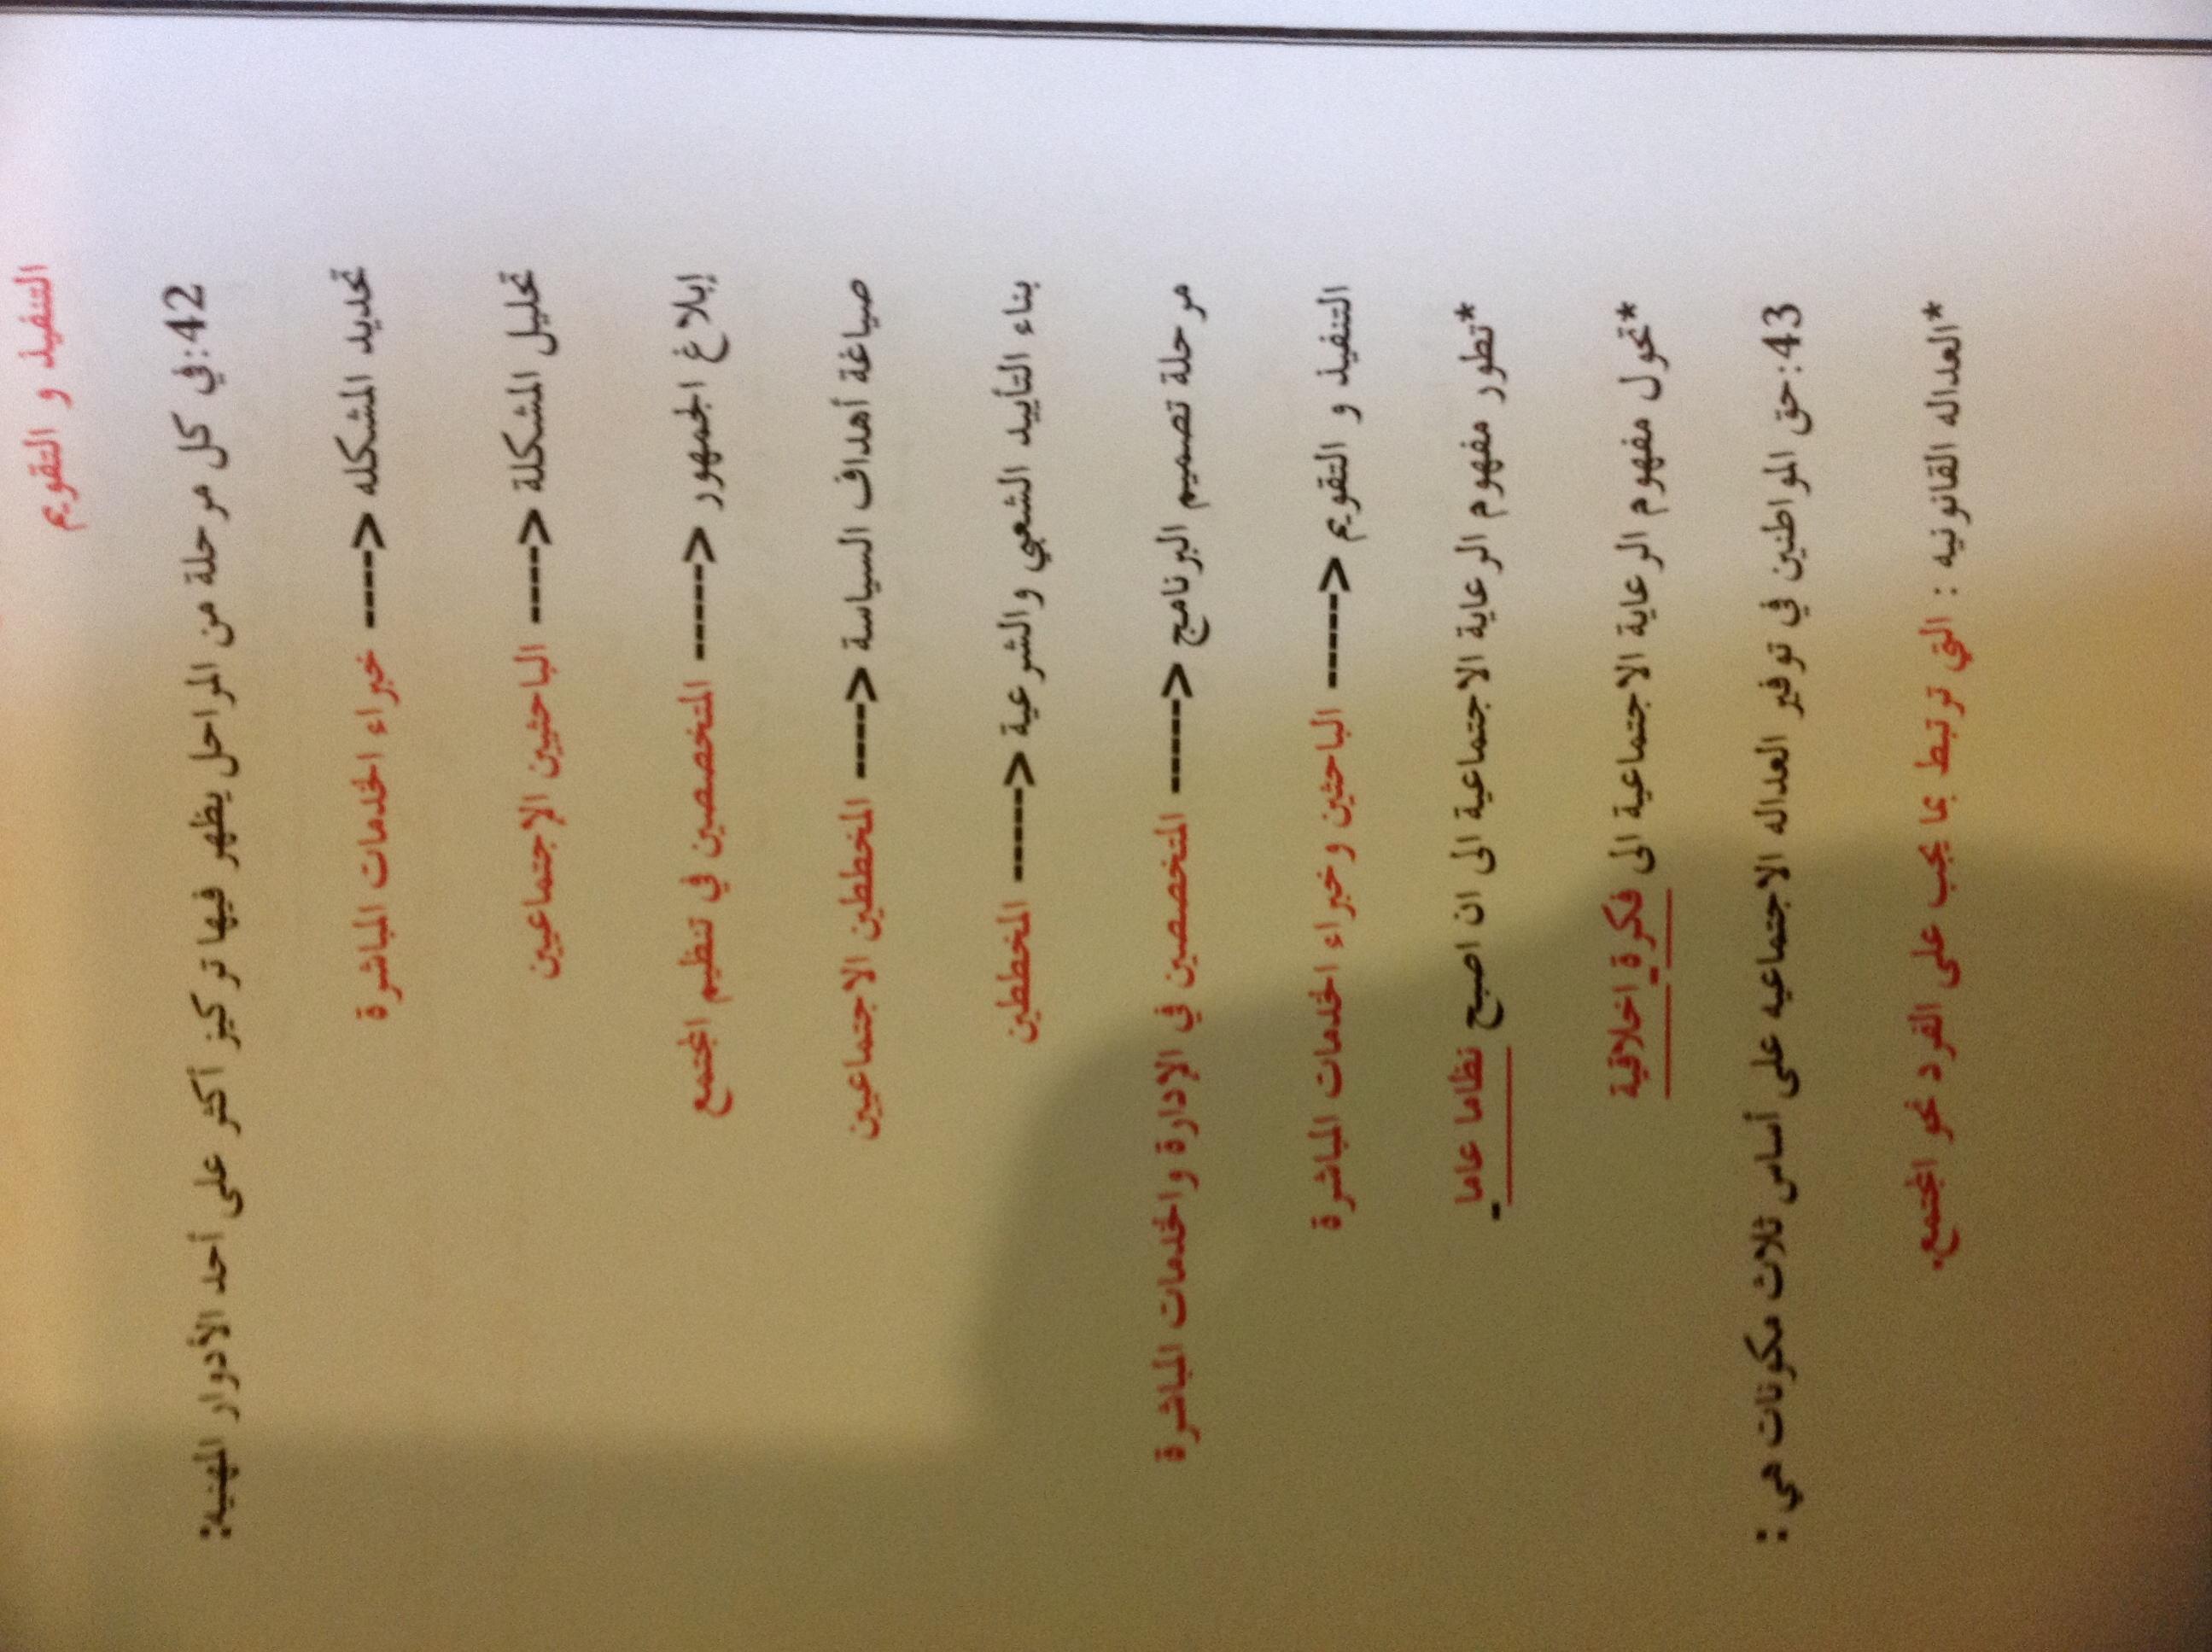 التنفيذ و التقويم
42:في كل مرحلة من المراحل يظهر فيها تركيز أكثر على أحد الأدوار المهنية:
تحديد المشكله <---- خبراء الخدمات المباشرة
تحليل المشكلة <---- الباحثيين الإجتماعيين
إبلاغ الجمهور <----- المتخصصين في تنظيم المجتمع
صياغة أهداف السياسة <---- المخططين الاجتماعيين
بناء التأييد الشعبي والشرعية <----- المخططين
مرحلة تصميم البرنامج <----- المتخصصين في الإدارة والخدمات المباشرة
التنفيذ و التقويم <----- الباحثين وخبراء الخدمات المباشرة
*تطور مفهوم الرعاية الاجتماعية الى ان اصبح نظاما عاما-
*تحول مفهوم الرعاية الاجتماعية الى فكرة اخلاقية
43:حق المواطنين في توفير العداله الاجتماعيه على أساس ثلاث مكونات هي :
*العداله القانونيه : التي ترتبط بما يجب على الفرد نحو المجتمع.